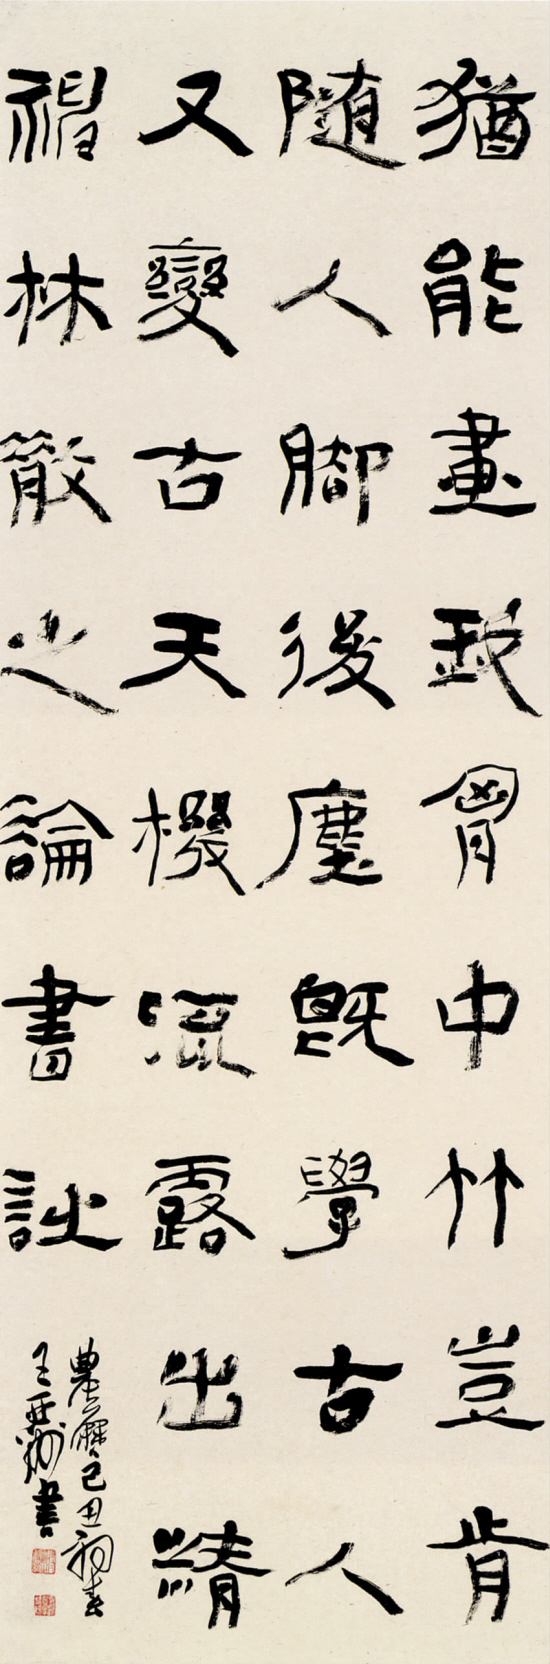 猶能畫我胷中竹豈肯
隨人脚後塵既學古人
又變古天機流露出精
神林散之論書詩
農曆己丑初春
王亚洲書